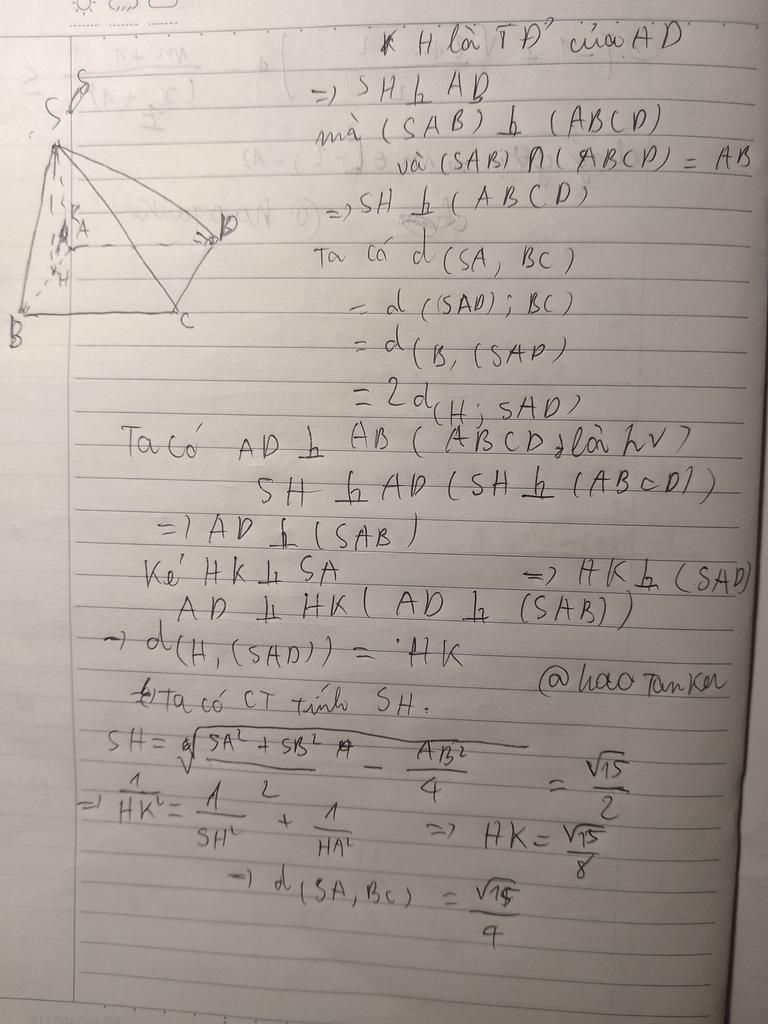 S
S
A
D
H
B
C
H là TĐ của AD
=> SH ⊥ AD
mà (SAB) ⊥ (ABCD)
và (SAB) ∩ (ABCD) = AB
=> SH ⊥ (ABCD)
Ta có d(SA, BC)
= d((SAD); BC)
= d(B, (SAD)
= 2d(H; SAD)
Ta có AD ⊥ AB (ABCD là hv)
SH ⊥ AD (SH ⊥ (ABCD))
=> AD ⊥ (SAB)
Kẻ HK ⊥ SA => HK ⊥ (SAD)
AD ⊥ HK (AD ⊥ (SAB))
-> d(H, (SAD)) = HK
@haoTanker
Ta có CT tính SH:
SH = √((SA² + SB²)/2 - AB²/4) = √15/2
=> 1/HK² = 1/SH² + 1/HA² => HK = √15/8
-> d(SA, BC) = √15/4